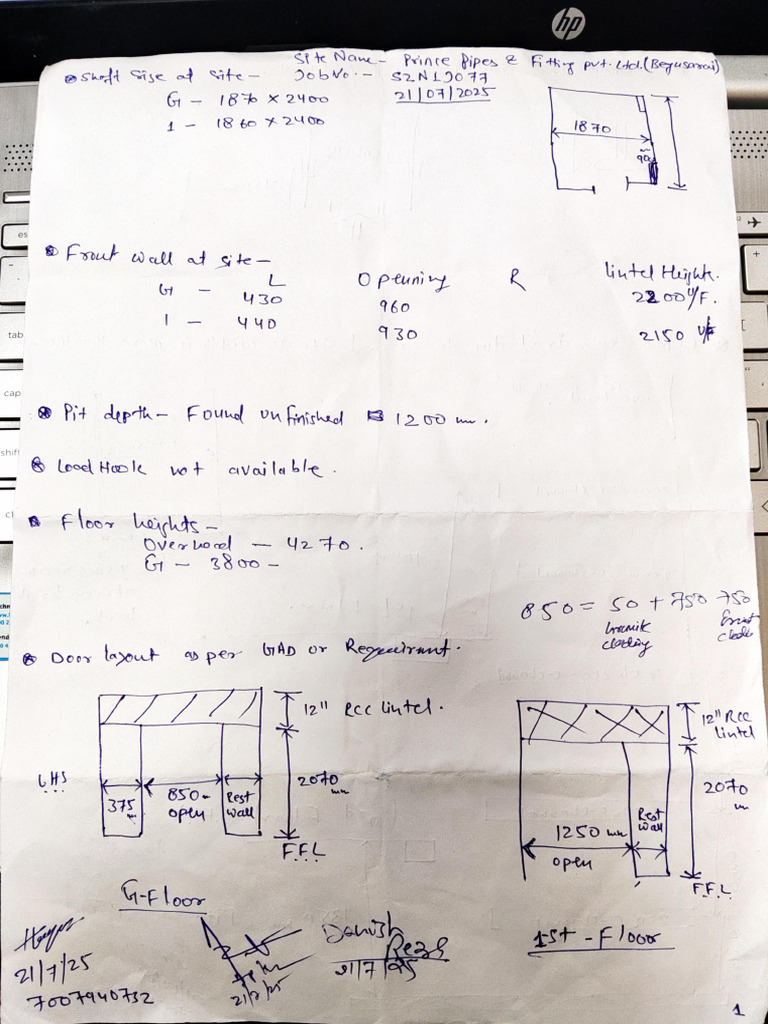 hp
Site Name - Prince Pipes & Fitting pvt. Ltd. (Begusarai)
Shaft Size at Site - Job No. - S2N1J077
G - 1870 x 2400 21/07/2025
1 - 1860 x 2400
1870
90
Front wall at site -
L Openning R Lintel Height.
G - 430 960 2200 U/F.
1 - 440 930 2150 U/F
Pit depth - Found unfinished 1200 mm.
Load Hook not available.
Floor heights -
Overhead - 4270.
G - 3800 -
850 = 50 + 750 + 50
Door layout as per GAD or Requirment.
12" RCC Lintel.
12" RCC Lintel
LHS
375 mm
850 open
Rest wall
2070 mm
F.F.L
G-Floor
1250 mm open
Rest wall
2070
F.F.L
1st - Floor
21/7/25
7007940732
21/7/25
Danish
21/7/25
1
esc
tab
cap
shift